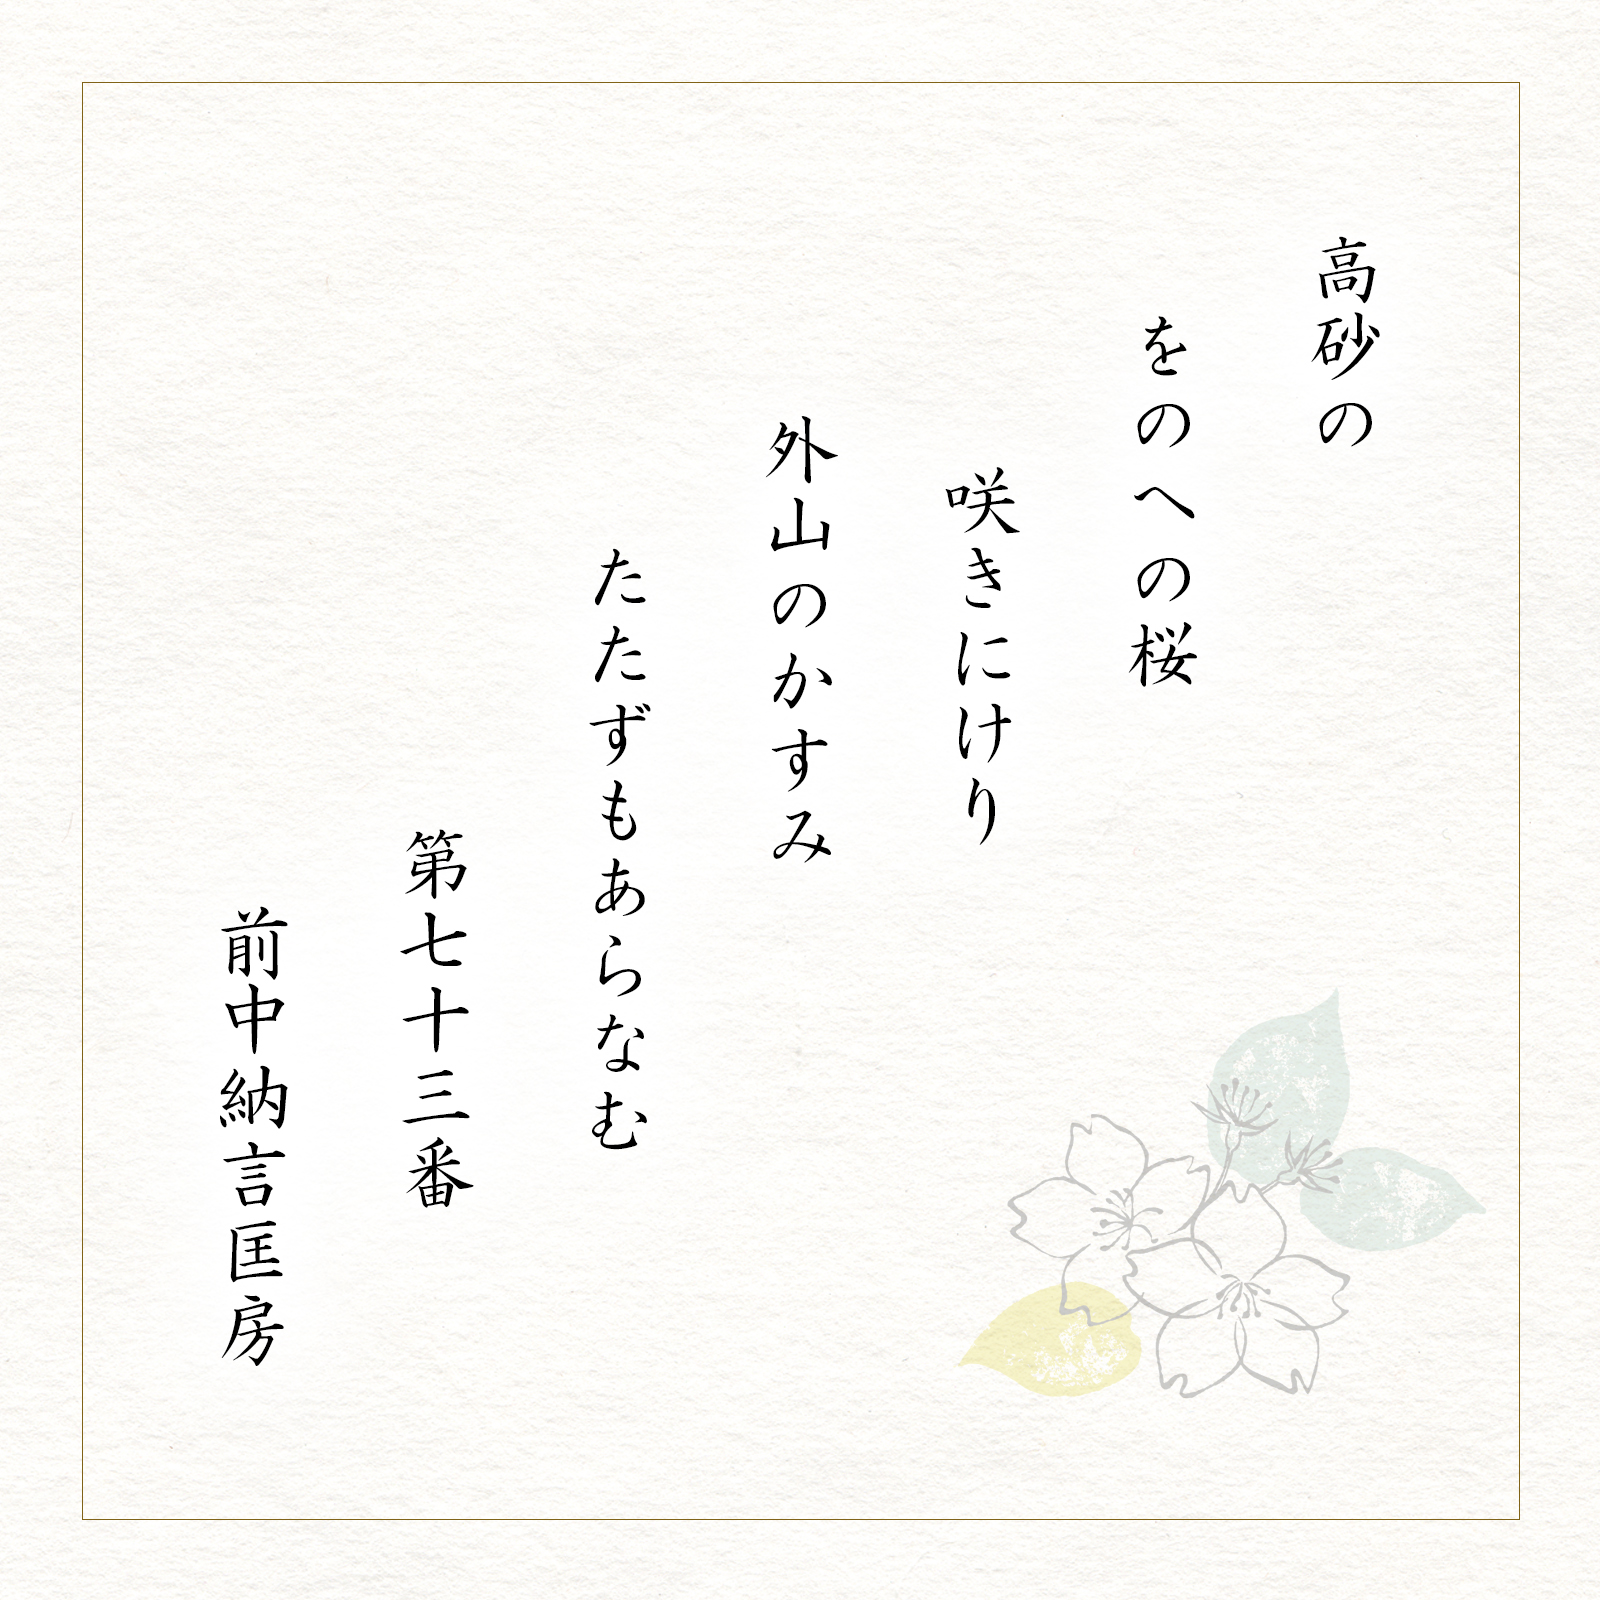 高砂の
をのへの桜
咲きにけり
外山のかすみ
たたずもあらなむ
第七十三番
前中納言匡房